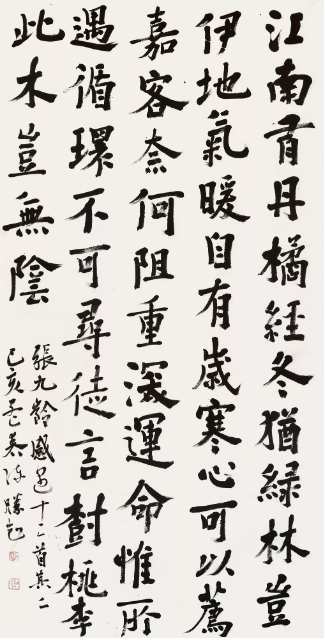 江南有丹橘經冬猶綠林豈
伊地氣暖自有歲寒心可以薦
嘉客奈何阻重深運命惟所
遇循環不可尋徒言樹桃李
此木豈無陰
張九齡感遇十二首其二
己亥春陳勝